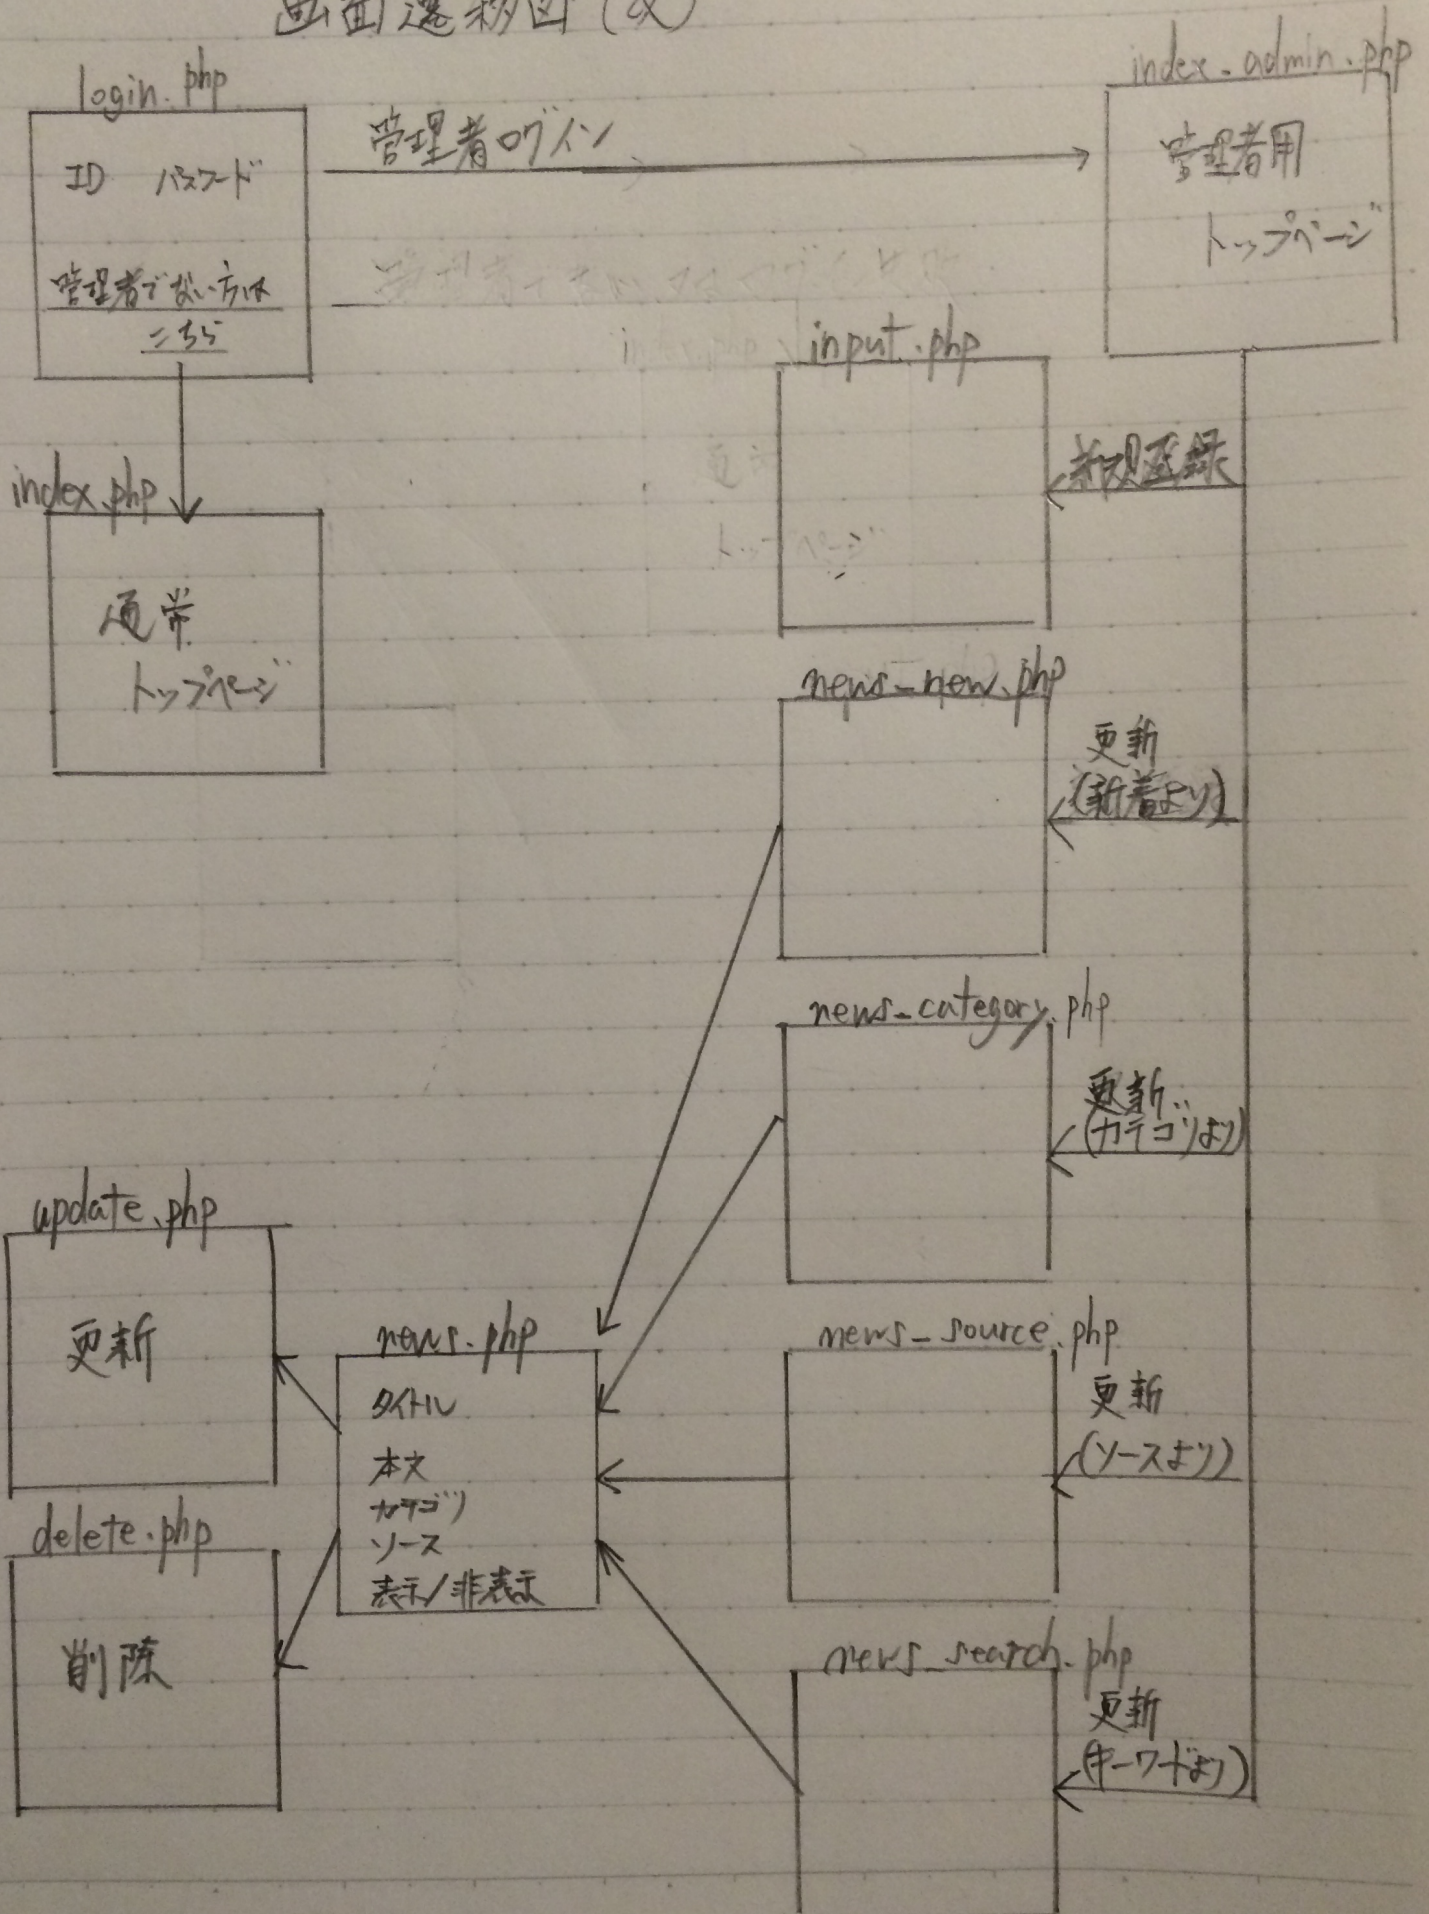 画面遷移図(改)
login.php
ID パスワード
管理者でない方は
こちら
管理者ログイン
index_admin.php
管理者用
トップページ
index.php
通常
トップページ
input.php
新規登録
news_new.php
更新
(新着より)
news_category.php
更新
(カテゴリより)
news_source.php
更新
(ソースより)
news_search.php
更新
(キーワードより)
news.php
タイトル
本文
カテゴリ
ソース
表示/非表示
update.php
更新
delete.php
削除
トップページ